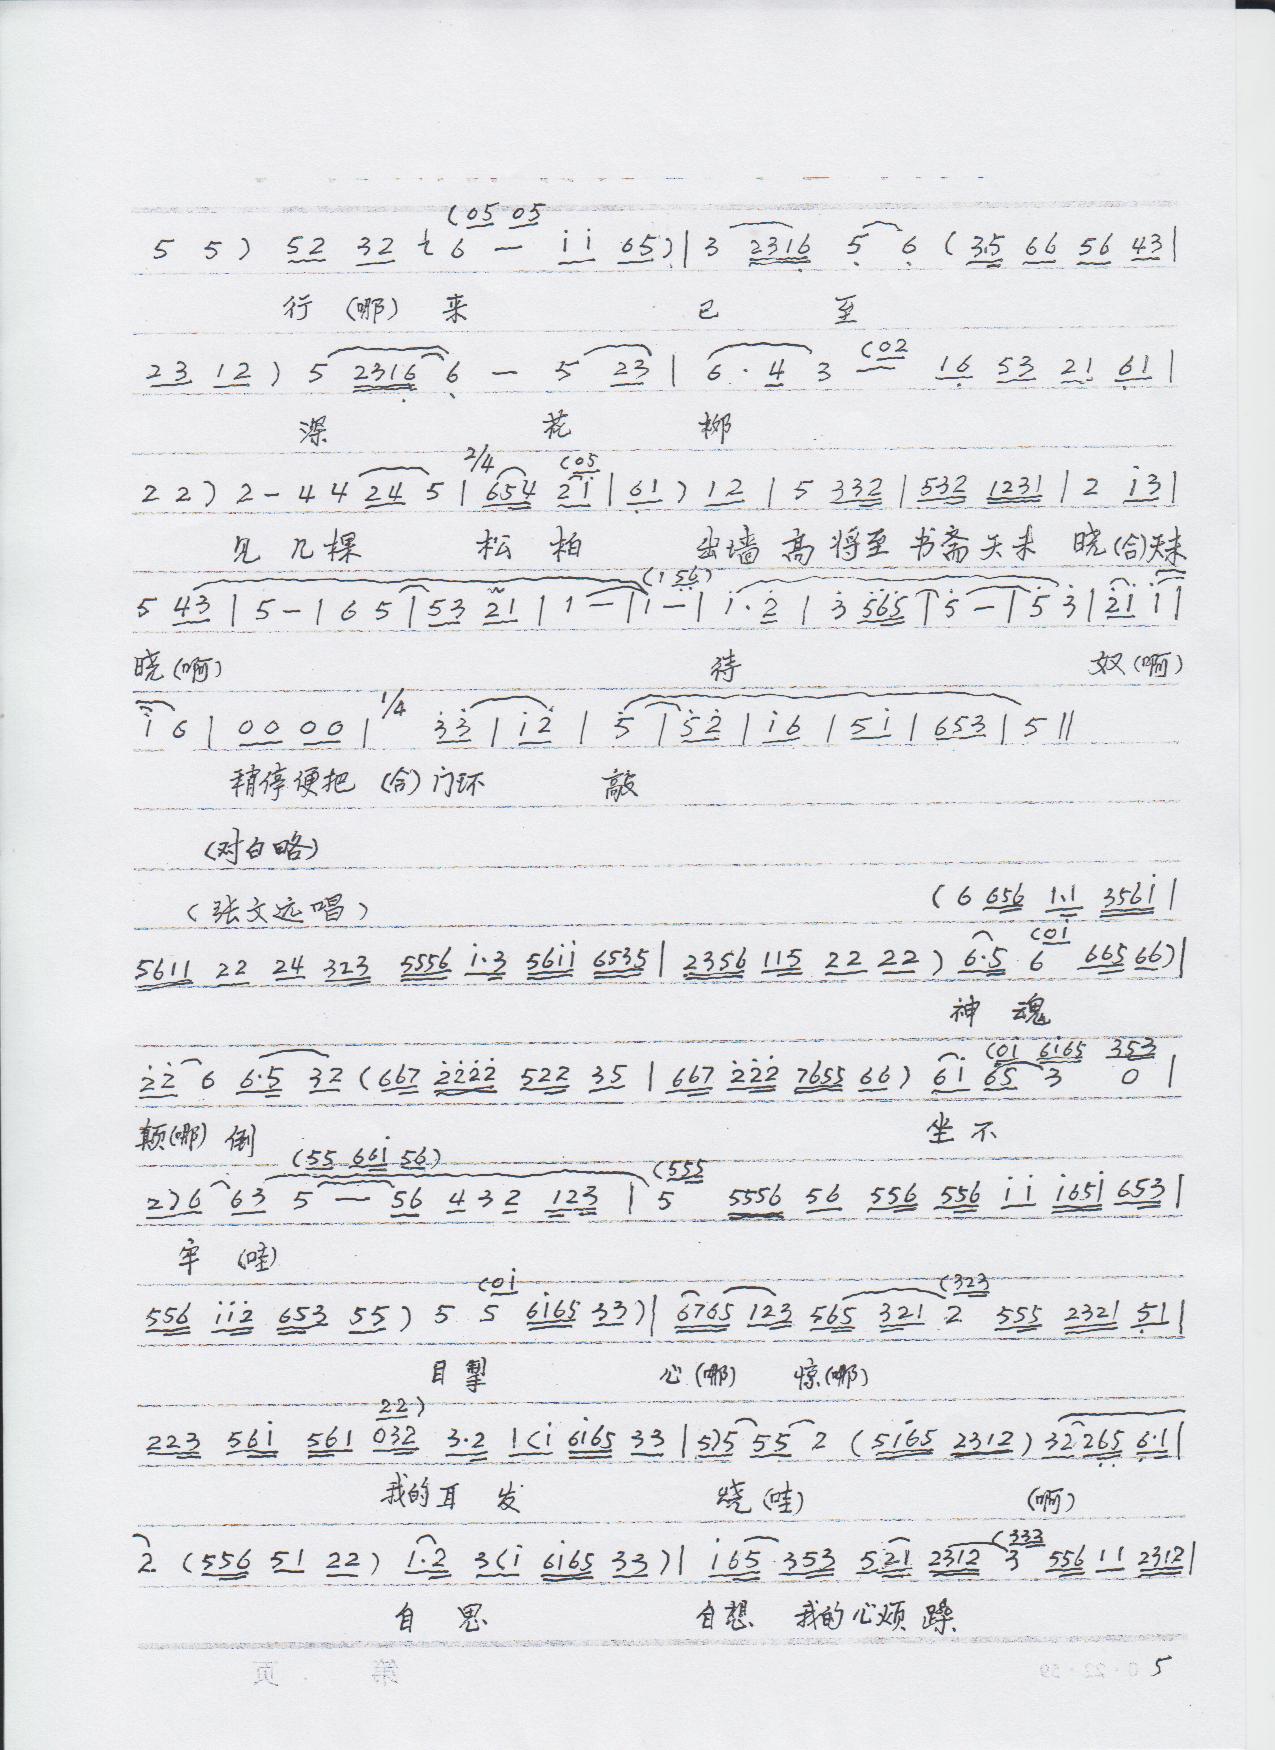 (05 05
5 5) 52 32 サ 6 — i̇ i̇ 65) | 3 2316 5 6 (3.5 66 56 43 |
行 (哪) 来 已 至
(02
23 12) 5 2316 6 — 5 23 | 6 · 4 3 16 53 21 61 |
深 花 柳
2/4 (05
2 2) 2 - 4 4 24 5 | 654 2i̇ | 61) 12 | 5 332 | 532 1231 | 2 i̇3 |
见 几棵 松 柏 出墙 高 将至 书斋 天未 晓 (合) 天未
(1 56)
5 43 | 5 - | 6 5 | 53 21 | 1 — | i̇ — | i̇ · 2̇ | 3̇ 5̇6̇5̇ | 5̇ — | 5̇ 3̇ | 2̇i̇ i̇ |
晓 (啊) 待 奴 (啊)
i̇ 6 | 00 00 | 1/4 3̇3̇ | i̇2̇ | 5̇ | 5̇2̇ | i̇6 | 5i̇ | 653 | 5 ||
稍停便把 (合) 门环 敲
(对白略)
(张文远唱) (6 656 1·1 356i̇ |
5611 22 24 323 5556 i̇·3 56i̇i̇ 6535 | 2356 115 22 22) 6·5 6 665 66) |
(0i̇
神 魂
(0i̇ 6i̇65 353
2̇2̇ 6 6·5 32 (667 2̇2̇2̇2̇ 522 35 | 667 2̇2̇2̇ 7655 66) 6i̇ 65 3 0 |
颠 (哪) 倒 坐 不
(55 66i̇ 56) (555
2) 6 63 5 — 56 4 3 2 123 | 5 5556 56 556 556 i̇ i̇ i̇65i̇ 653 |
牢 (哇)
(0i̇ (323
556 i̇i̇2̇ 653 55) 5 5 6i̇65 33) | 6765 123 565 321 2 555 2321 51 |
目 掣 心 (哪) 惊 (哪)
22)
223 56i̇ 561 032 3·2 1 (i̇ 6i̇65 33 | 5) 5 55 2 (5i̇65 2312) 32 265 6·1 |
我的 耳 发 烧 (哇) (啊)
(333
2 (556 51 22) 1·2 3 (i̇ 6i̇65 33) | i̇65 353 521 2312 3 556 11 2312 |
自 思 自想 我的 心烦 躁
第 . 页
5